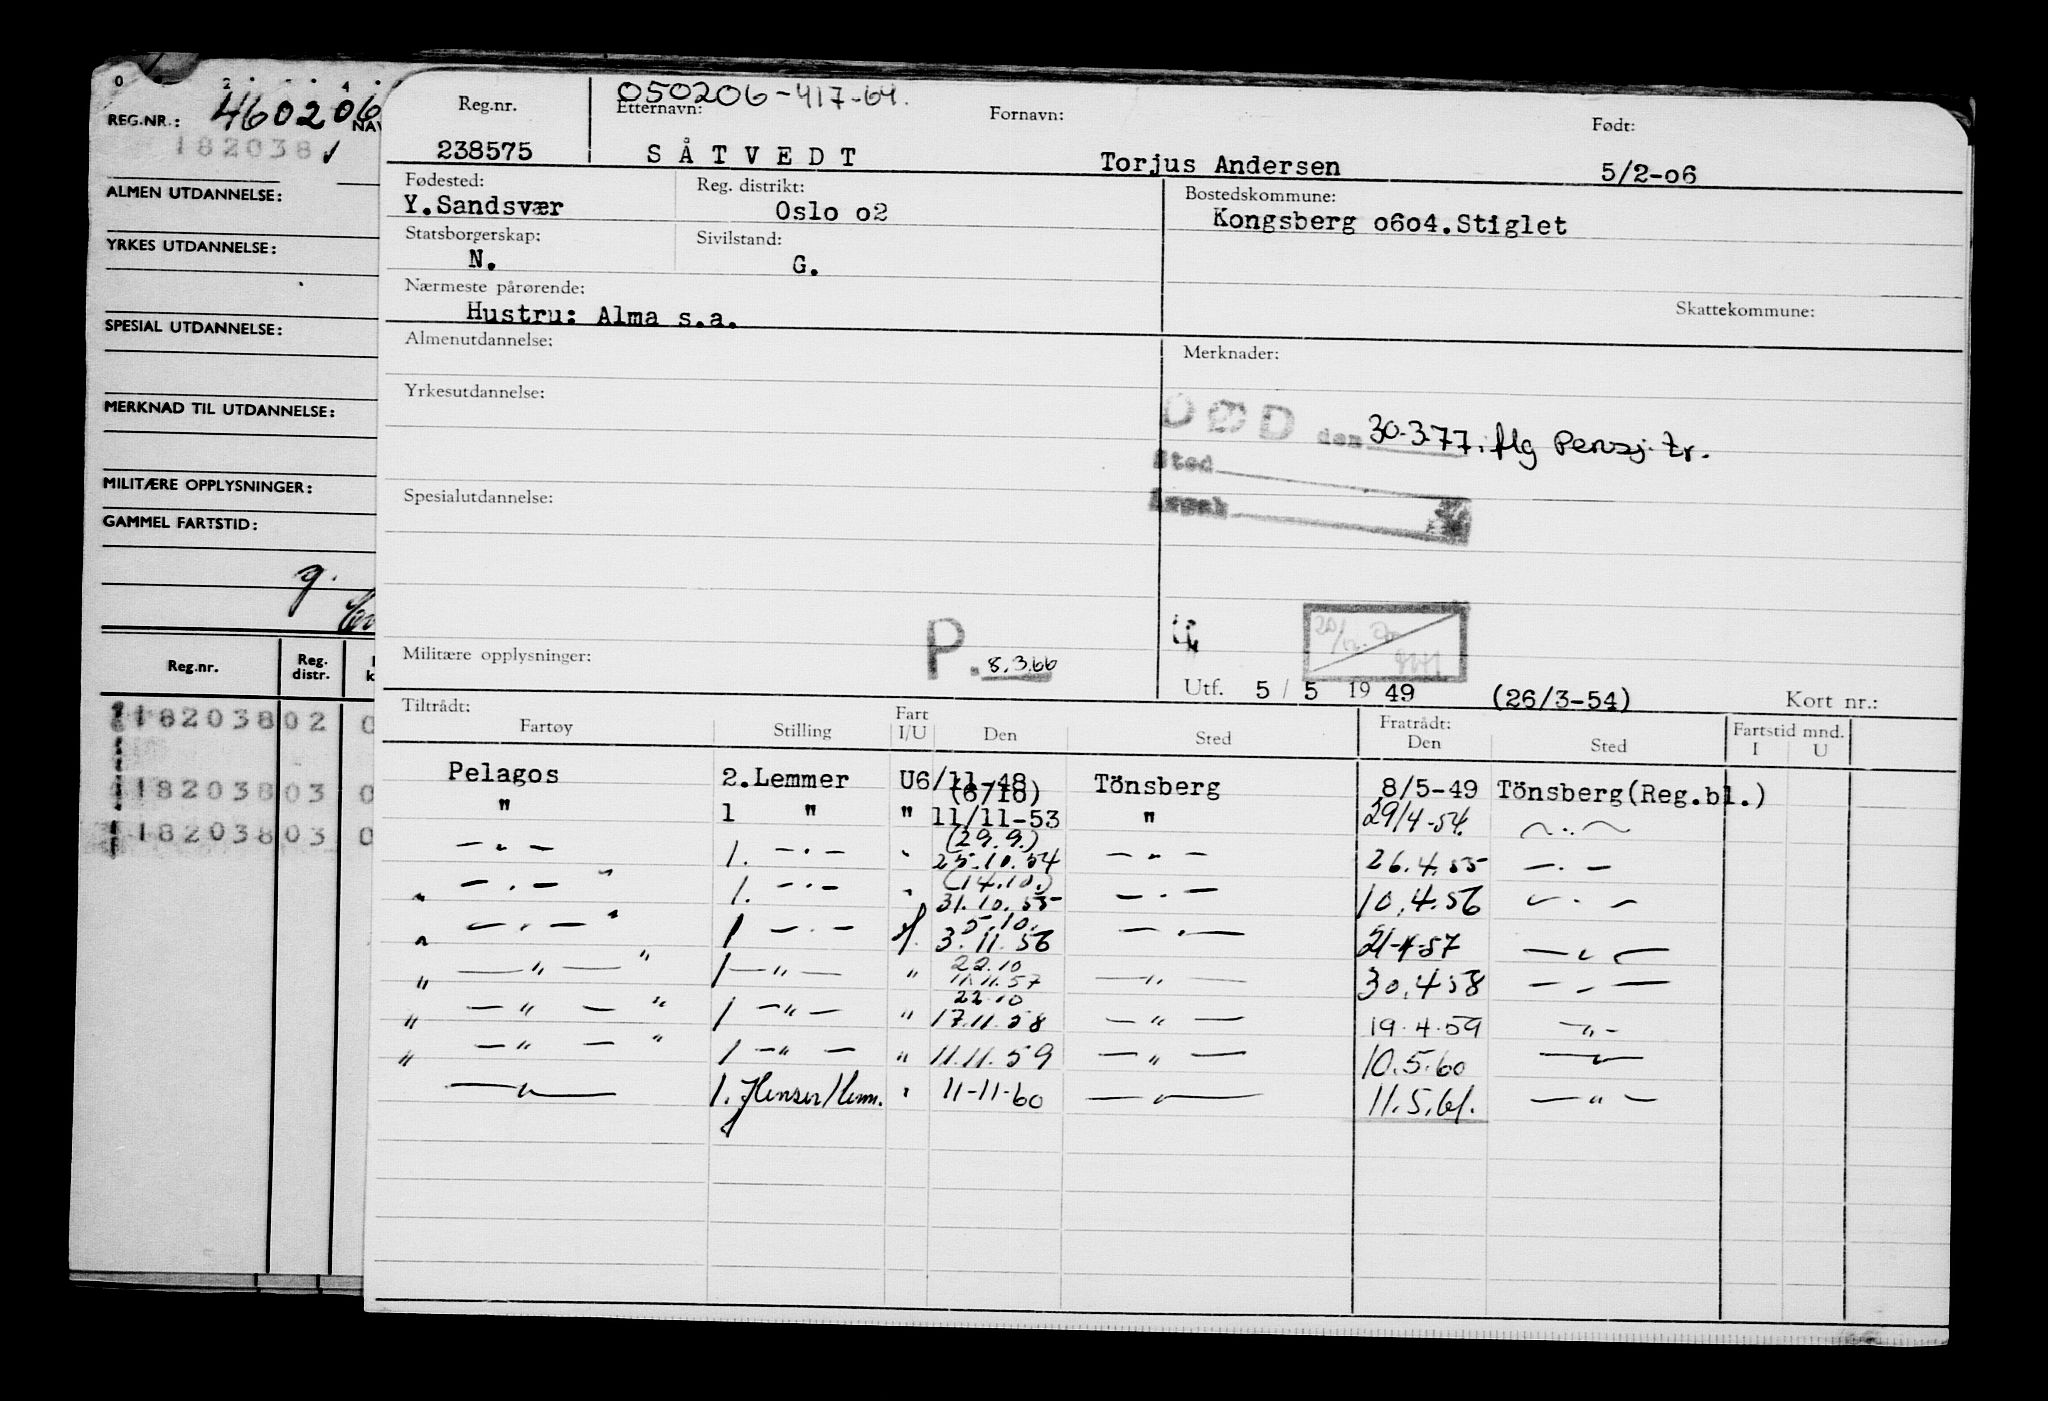 REG.NR.: 460206 NAV
182038 ✓
ALMEN UTDANNELSE:
YRKES UTDANNELSE:
SPESIAL UTDANNELSE:
MERKNAD TIL UTDANNELSE:
MILITÆRE OPPLYSNINGER:
GAMMEL FARTSTID:
g.
Reg.nr. Reg. distr. k
182038 02 0
182038 03 0
182038 03 0
050206-417-64.
Reg.nr. Etternavn: Fornavn: Født:
238575 SÅTVEDT Torjus Andersen 5/2-o6
Fødested: Reg. distrikt: Bostedskommune:
Y.Sandsvær Oslo o2 Kongsberg o6o4.Stiglet
Statsborgerskap: Sivilstand:
N. G.
Nærmeste pårørende: Skattekommune:
Hustru: Alma s.a.
Almenutdannelse: Merknader:
Yrkesutdannelse:
DØD den 30-3-77. flg Pensj. tr.
Sted
Spesialutdannelse:
Militære opplysninger: P. 8.3.66
Utf. 5 / 5 19 49 (26/3-54) Kort nr.:
Tiltrådt: Fratrådt: Fartstid mnd.
Fartøy Stilling Fart I/U Den Sted Den Sted I U
Pelagos 2.Lemmer U 6/11-48 Tönsberg 8/5-49 Tönsberg(Reg.bl.)
(6/10)
" 1 " " 11/11-53 " 29/4-54. ~..~
(29.9.)
— " — 1. — " — " 25.10.54 — " — 26.4.55 — . —
(14.10.)
" — . — " 1. — . — " 31.10.55 — . — 10.4.56 — . —
5.10.
" — . — " 1 — . — 3.11.56 — . — 21-4-57 — " —
22.10
" — " — " 1 — " — " 11.11.57 — " — 30.4.58 — " —
22.10
" — " — " 1 — " — " 17.11.58 — " — 19.4.59 — " —
" — " — " 1 — " — " 11.11.59 — " — 10.5.60 — " —
— " — 1. " 11-11-60 — " — 11.5.61. — " —